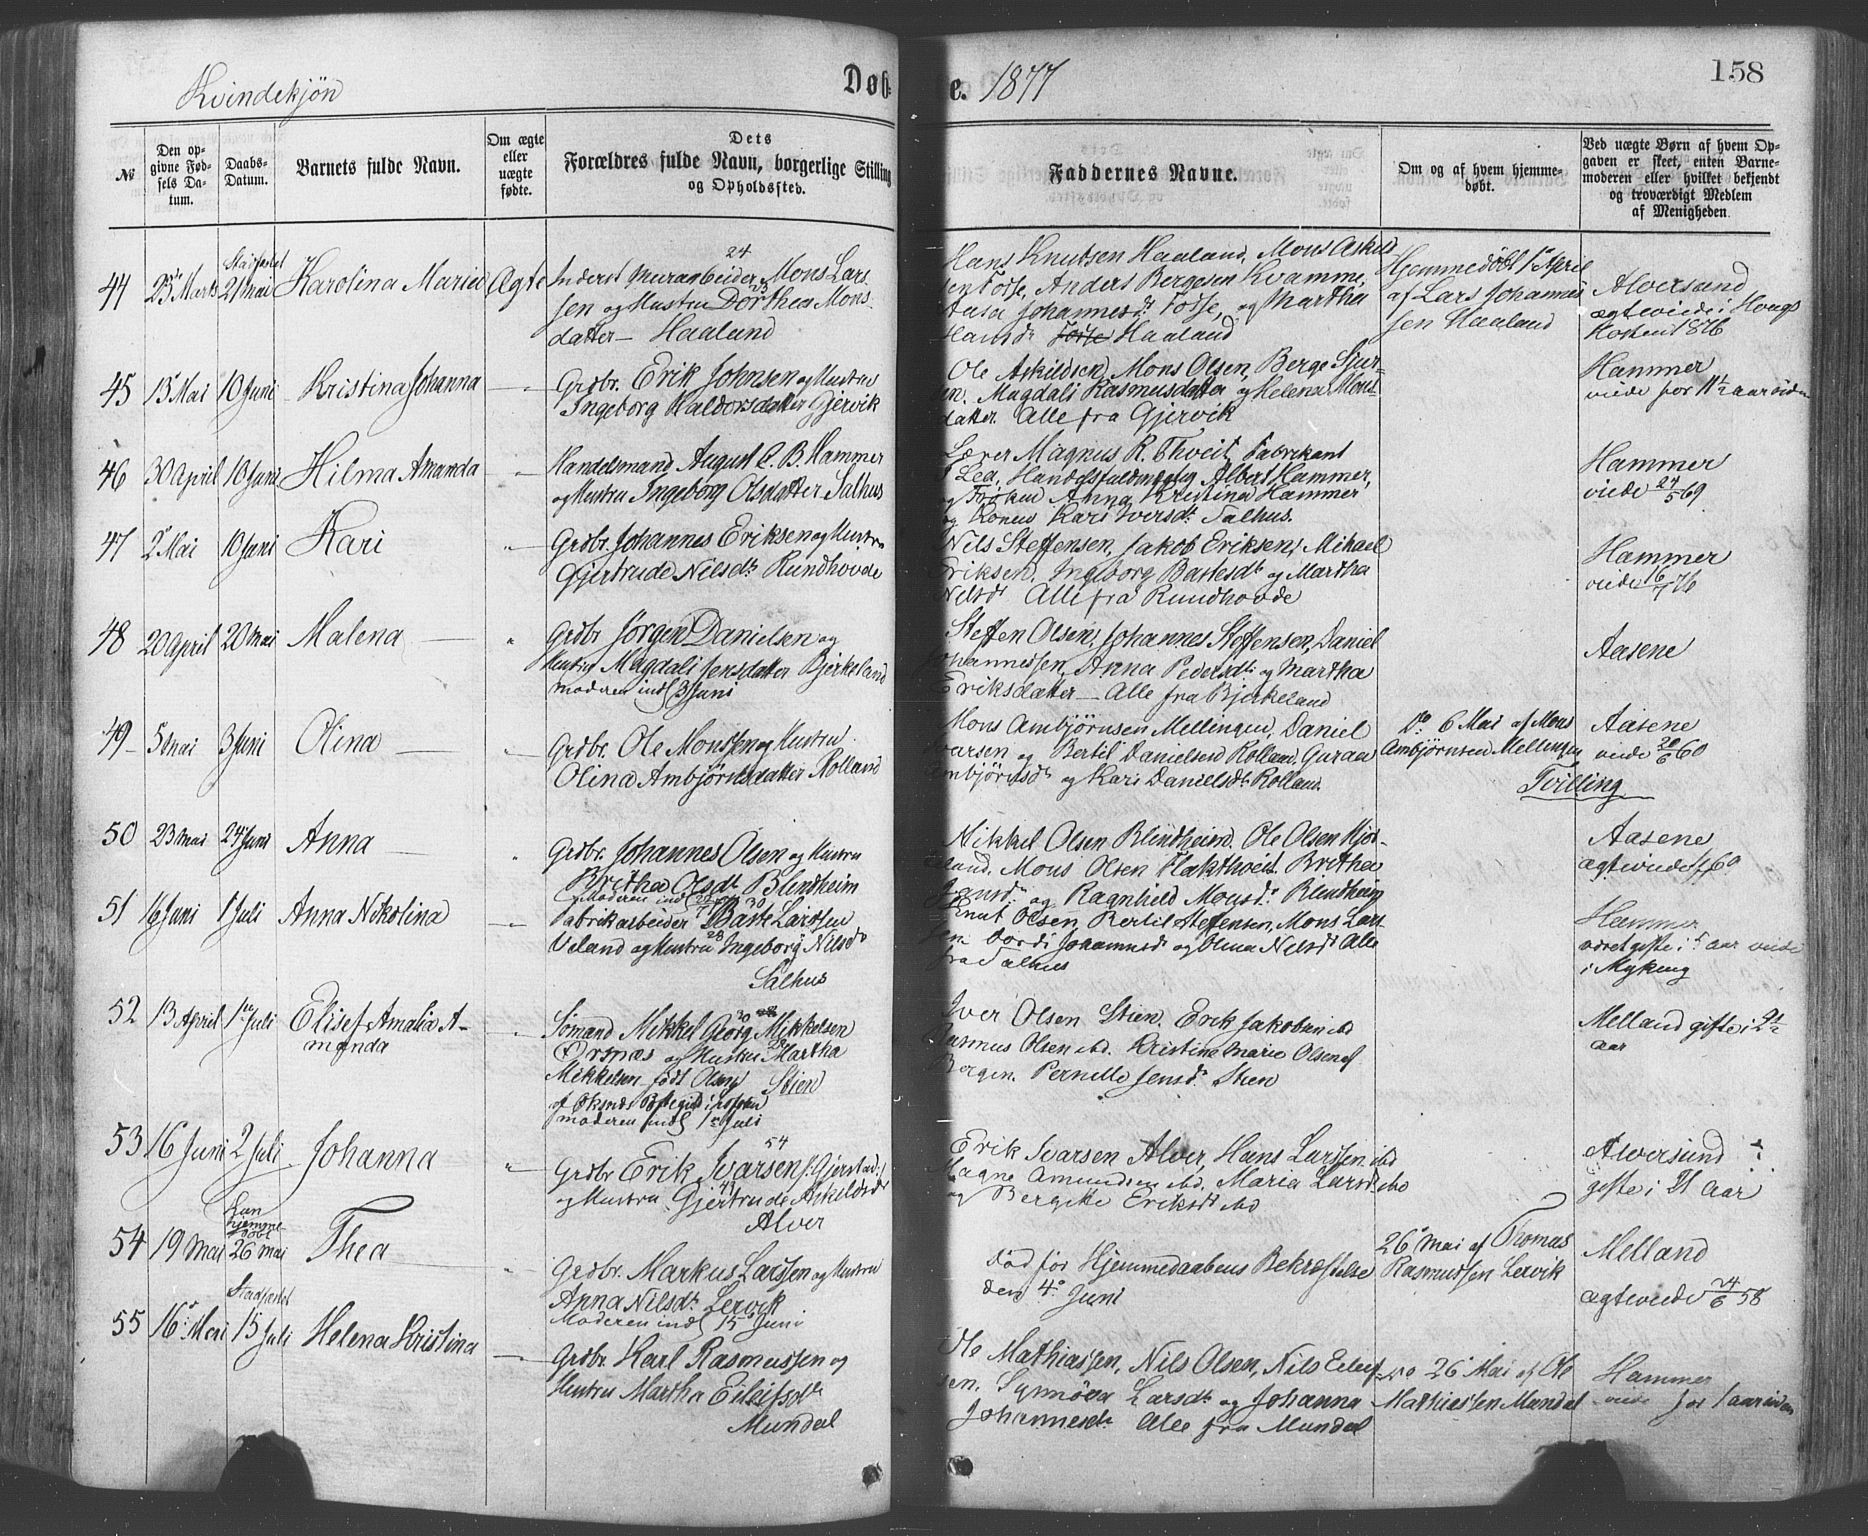 Kvindekjön
Døbte. 1877
158
№
Den opgivne Fødsels Datum.
Daabs-Datum.
Barnets fulde Navn.
Om ægte eller uægte fødte.
Dets Forældres fulde Navn, borgerlige Stilling og Opholdssted.
Faddernes Navne.
Om og af hvem hjemmedøbt.
Ved uægte Børn af hvem Opgaven er skeet, enten Barnemoderen eller hvilket bekjendt og troværdigt Medlem af Menigheden.
44 25 Marts Stadfæstet 21 Mai Karolina Maria Ægte
Inderst Murarbeider Mons Lars- 24
sen og Hustru Dorthea Mons- 23
datter — Haaland
Hans Knutsen Haaland, Mons Askild-
sen Fosse, Anders Bergesen Kvamme,
Johannesdt Fosse, og Martha
Hansdr Fosse Haaland
Hjemmedöbt 1 April
af Lars Johannes
sen Haaland
Alversund
ægteviede i
Höst 1876
45 13 Mai 10 Juni Kristina Johanna —
Grdbr. Erik Johnsen og Hustru
Ingeborg Haldorsdatter Gjervik
Ole Askildsen, Mons Olsen, Berge Sjur-
sen. Magdali Rasmusdatter og Helena Mons-
datter. Alle fra Gjervik
Hammer
viede for 11½ aar siden
46 30 April 10 Juni Hilma Amanda "
Handelsmand August C. B. Hammer
og Hustru Ingeborg Olsdatter Salhus
Lærer Magnus R. Thveit, Fabrikant
Lea, Handelsfuldmægtig Albert Hammer,
og Frøken Anna Kristina Hammer
og Konen Kari Iversdt Salhus.
Hammer
viede 24/5 69
47 2 Mai 10 Juni Kari "
Grdbr. Johannes Eriksen og Hustru
Gjertrude Nilsdt Rundhovde
Nils Steffensen, Jakob Eriksen, Mikael
Eriksen. Ingeborg Bastesdt og Martha
Nilsdt Alle fra Rundhovde
Hammer
viede 16/7 76
48 20 April 20 Mai Malena — "
Grdbr Jörgen Danielsen og
Hustru Magdali Jensdatter Bjerkeland
Moderen indl 3 Juni
Steffen Olsen, Johannes Steffensen, Daniel
Johannessen, Anna Pedersdt og Martha
Eriksdatter — Alle fra Bjerkeland
Aasene
49 5 Mai 3 Juni Olina — "
Grdbr. Ole Monssen og Hustru
Olina Ambjörnsdatter Rolland
Mons Ambjörnsen Mellingen, Daniel
Ivarsen og Bertil Danielsen Rolland. Guraa
Ambjörnsdt og Kari Danielsdt Rolland.
Do 6 Mai af Mons
Ambjörnsen Mellingen
Tvilling
Aasene
viede 20/6 60
50 23 Mai 24 Juni Anna — "
Grdbr. Johannes Olsen og Hustru
Britha Olsdt Blindheim
Moderen indl
Nikkel Olsen Blindheim. Ole Olsen Hjor-
land. Mons Olsen Flaktveit. Britha
Jansdt og Ragnhild Monsdt Blindheim
Aasene
ægteviede 69
51 16 Juni 1 Juli Anna Nikolina "
Fabrikarbeider Baste Larssen 30
Veland og Hustru Ingeborg Nilsdt 28
Salhus
Knut Olsen, Bertil Steffensen, Mons Lars-
sen Johannesdt og Olina Nilsdt Alle
fra Salhus
Hammer
været gifte i 5 aar viede
i Myking
52 13 April 1 Juli Elisef Amalia A-
manda "
Sömand Mikkel Georg Mikkelsen 30
og Hustru Martha
Mikkelsen födt Olsen Stien
moderen indl 1 Juli
Iver Olsen Stien. Erik Jakobsen ibd
Rasmus Olsen ibd. Kristine Marie Olsen af
Bergen. Pernille Jensdt Stien
Melland gifte i
aar
53 16 Juni 2 Juli Johanna "
Grdbr. Erik Ivarsen (: Gjerstad :) 54
og Hustru Gjertrude Askildsdt 44
Alver
Erik Ivarsen Alver, Hans Larssen ibd
Magne Amundsen ibd. Maria Larsdt ibd
og Bergitte Eriksdt ibd
Alversund
gifte i 21 aar
54 19 Mai Kun hjemme-döbt 26 Mai Thea — "
Grdbr. Markus Larssen og Hustru
Anna Nilsdt Lervik
Moderen indl 15 Juni
Död för Hjemmedaabens Bekræftelse
den 4 Juni
26 Mai af Thomas
Rasmussen Lervik
Melland
ægteviede 24/6 58
55 16 Mai Stadfæstet 15 Juli Helena Kristina —
Grdbr. Karl Rasmussen og
Hustru Martha Eilefsdt
Mundal
Ole Mathiassen, Nils Olsen, Nils Eilef-
sen. Synnöva Larsdt og Johanna
Johannesdt Alle fra Mundal
Do 26 Mai af Ole
Mathiassen Mundal
Hammer
viede for 1 aar siden